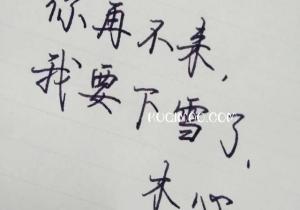 你再不来，
我要下雪了，
木心